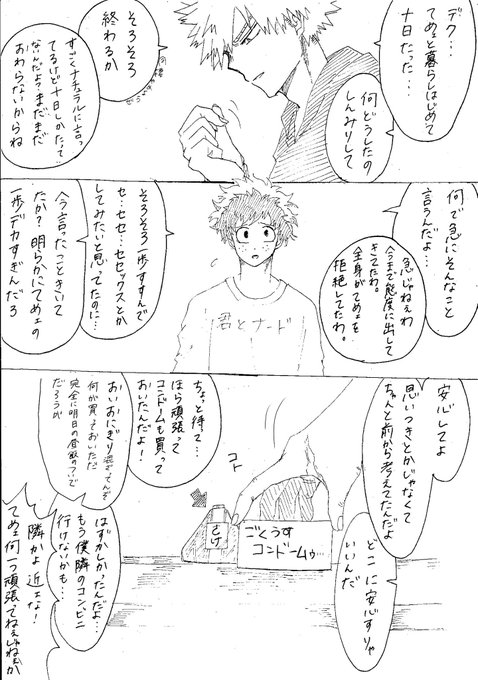 デク…
てめェと暮らしはじめて
十日たった…
何どうしたの
しんみりして
そろそろ
終わるか
すっごくナチュラルに言っ
てるけど十日しかたって
ないんだよ?まだまだ
おわらないからね
何で急にそんなこと
言うんだよ…
急じゃねぇわ
今まで態度に出して
きてたわ。
全身がてめェを
拒絶してたわ。
君とナード
そろそろ一歩すすんで
セ・セセ…セセックスとか
してみたいと思ってたのに…
今言ったこときいて
たか?明らかにてめェの
一歩デカすぎんだろ
安心してよ
思いつきとかじゃなくて
ちゃんと前から考えてたんだよ
どこに安心すりゃ
いいんだ
コト
ごくうす
コンドームゥ…
さけ
ちょっと待て…
ほら頑張って
コンドームも買って
おいたんだよ!
おいおにぎり混ざってんぞ
何が買っておいただ
完全に明日の昼飯のついで
だろうが
はずかしかったんだよ…
もう僕隣のコンビニ
行けないかも…
隣かよ 近ェな!
てめェ何一つ頑張ってねぇじゃねぇか